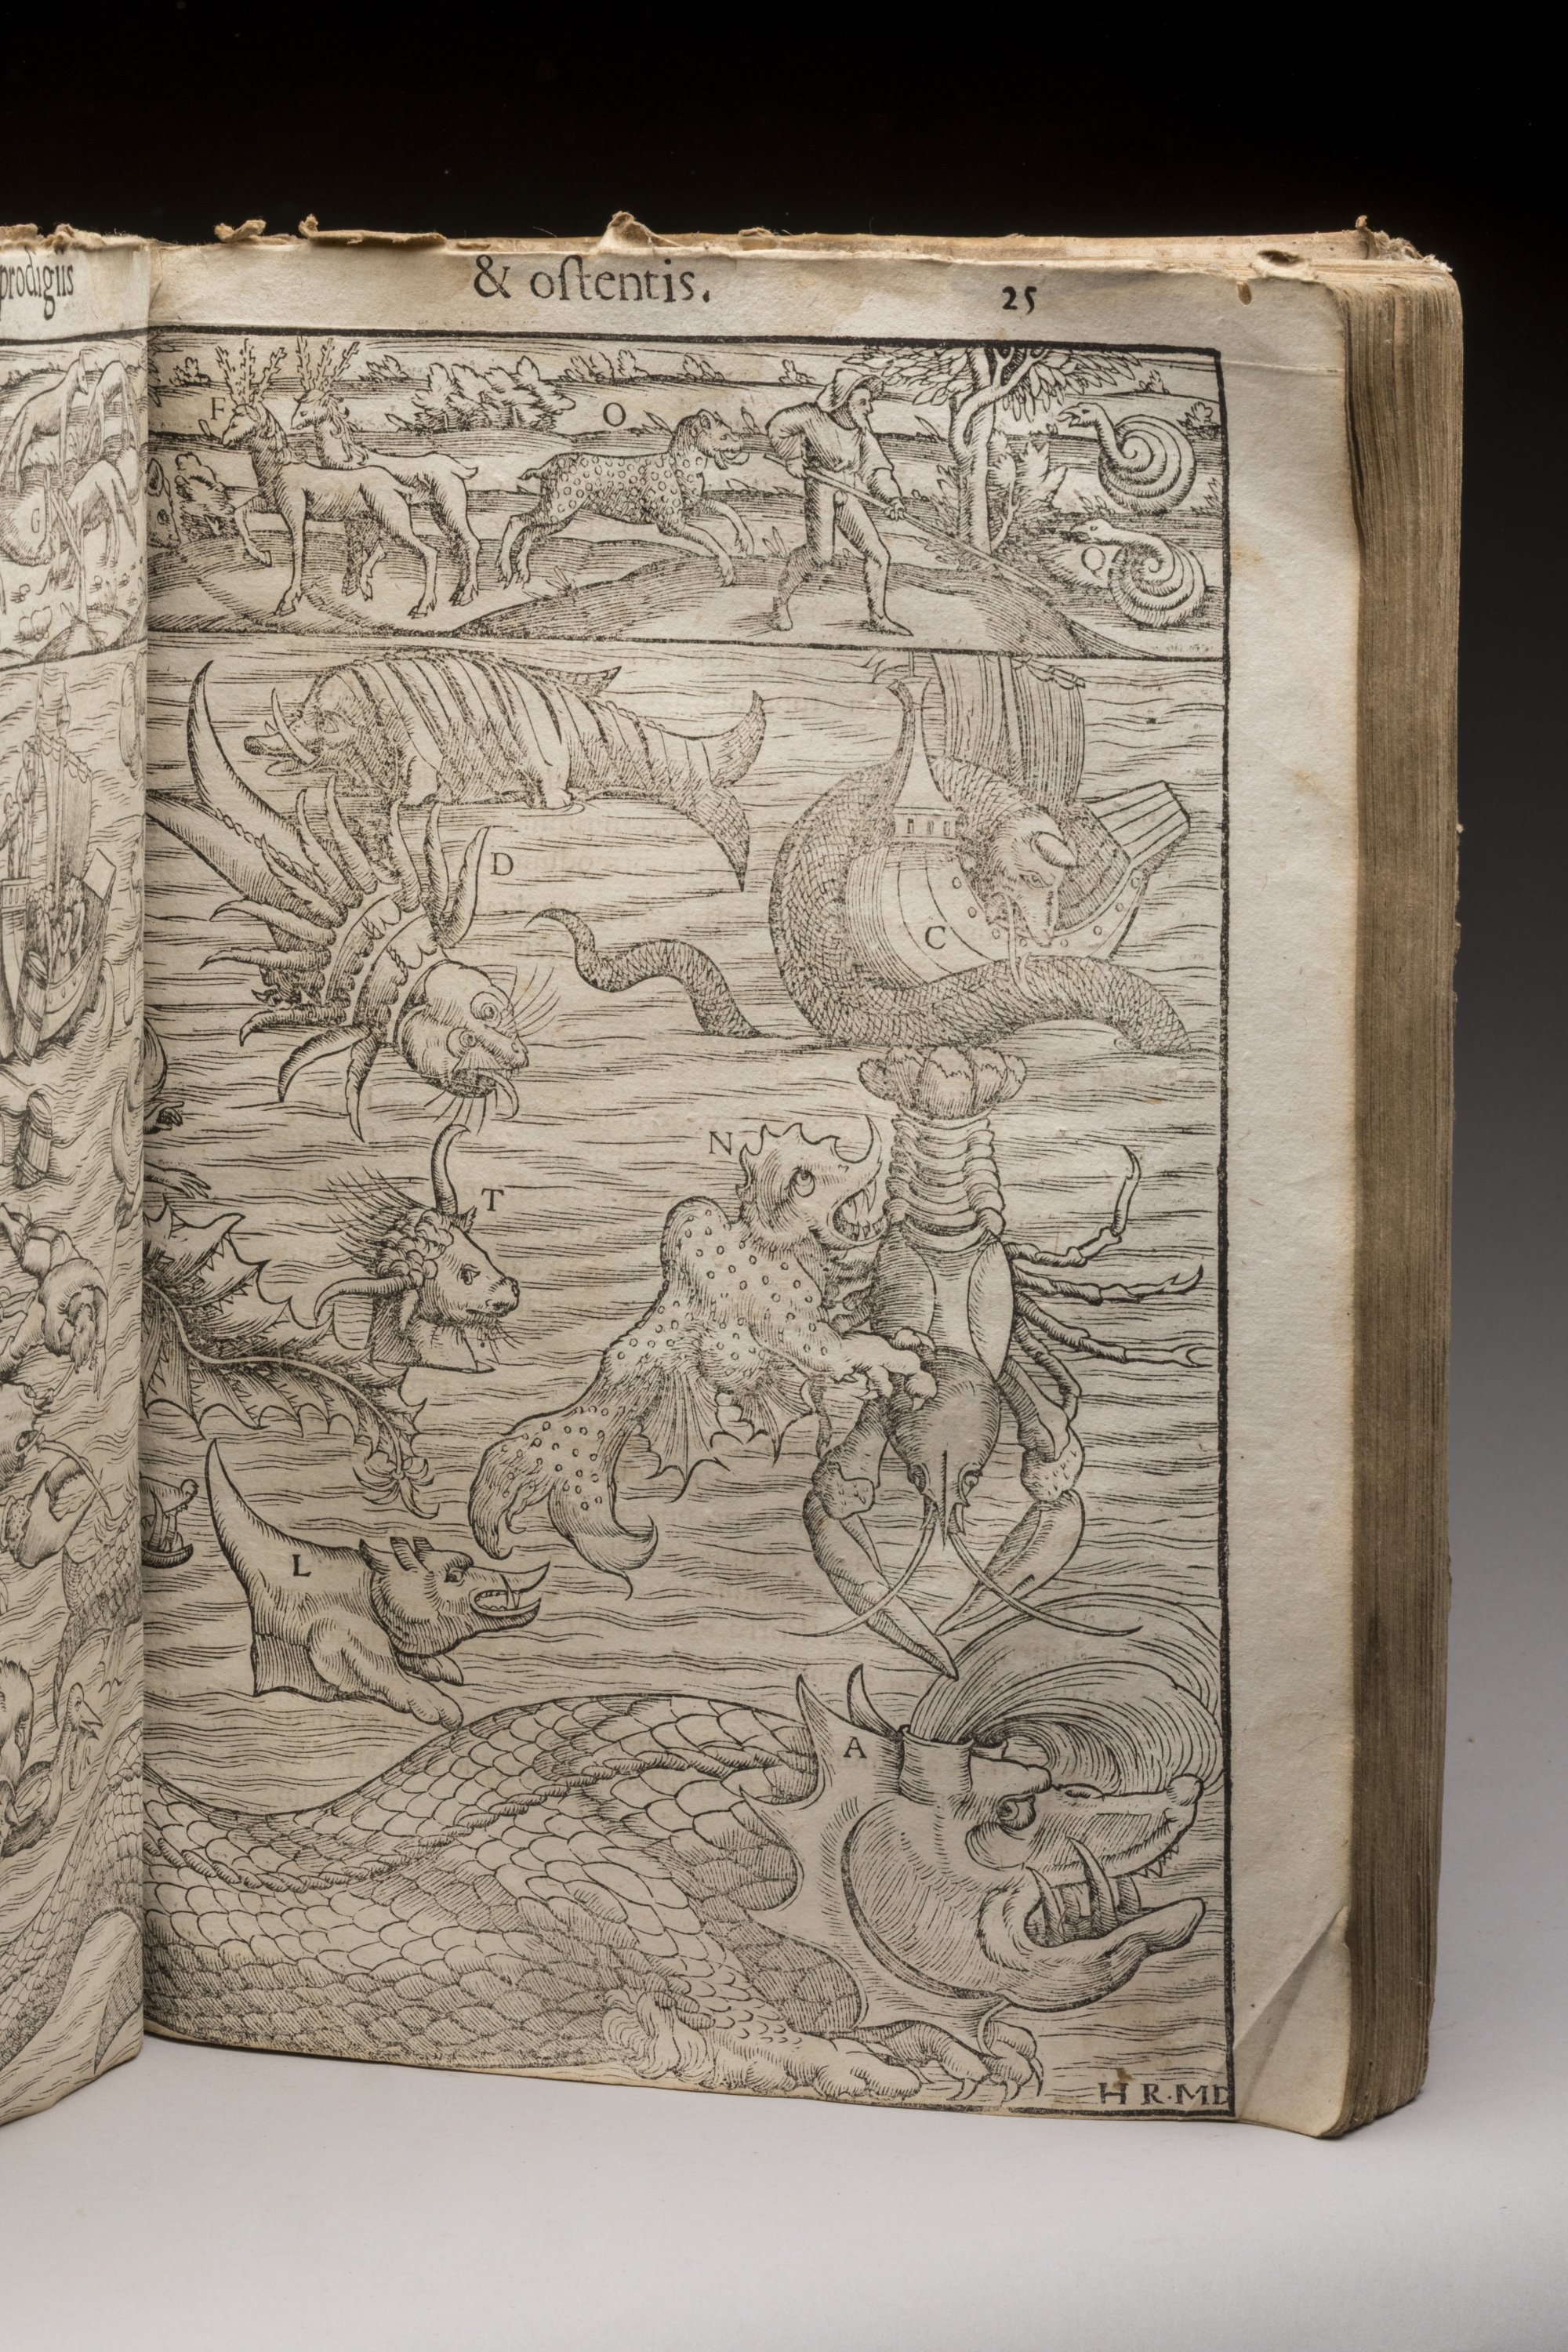 prodigiis
& oſtentis. 25
F O
Q
G
D
C
N
T
L
A
H R·MD